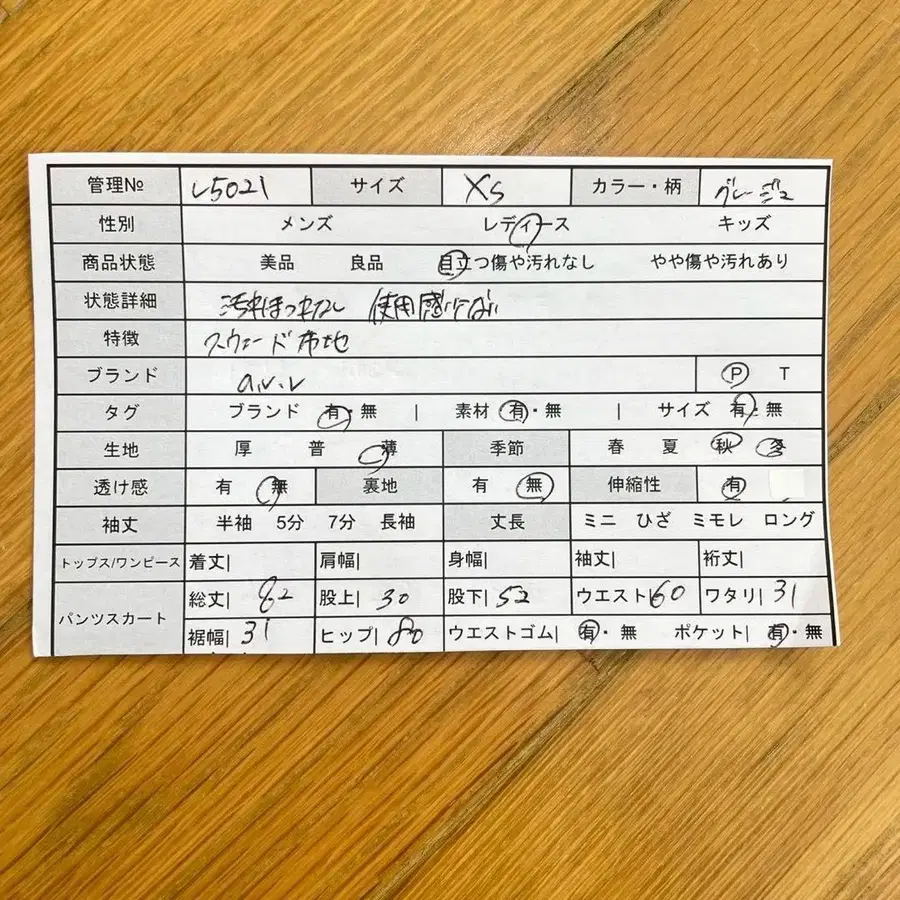 管理№ L5021 サイズ XS カラー・柄 グレージュ
性別 メンズ レディース キッズ
商品状態 美品 良品 目立つ傷や汚れなし やや傷や汚れあり
状態詳細 汚れほつれなし 使用感少ない
特徴 スウェード布地
ブランド a.v.v P T
タグ ブランド 有・無 | 素材 有・無 | サイズ 有・無
生地 厚 普 薄 季節 春 夏 秋 冬
透け感 有 無 裏地 有 無 伸縮性 有
袖丈 半袖 5分 7分 長袖 丈長 ミニ ひざ ミモレ ロング
トップス/ワンピース 着丈| 肩幅| 身幅| 袖丈| 裄丈|
パンツスカート 総丈| 82 股上| 30 股下| 52 ウエスト 60 ワタリ| 31
裾幅| 31 ヒップ| 80 ウエストゴム| 有・無 ポケット| 有・無